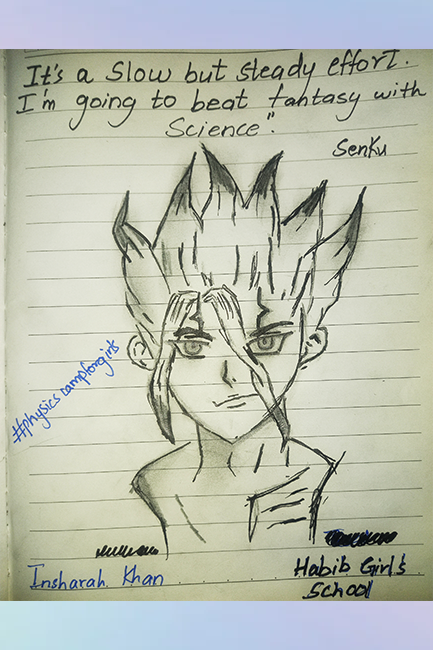 It's a Slow but steady effort.
I'm going to beat fantasy with
Science".
Senku
#physicscampforgirls
Insharah Khan
Habib Girl's
School